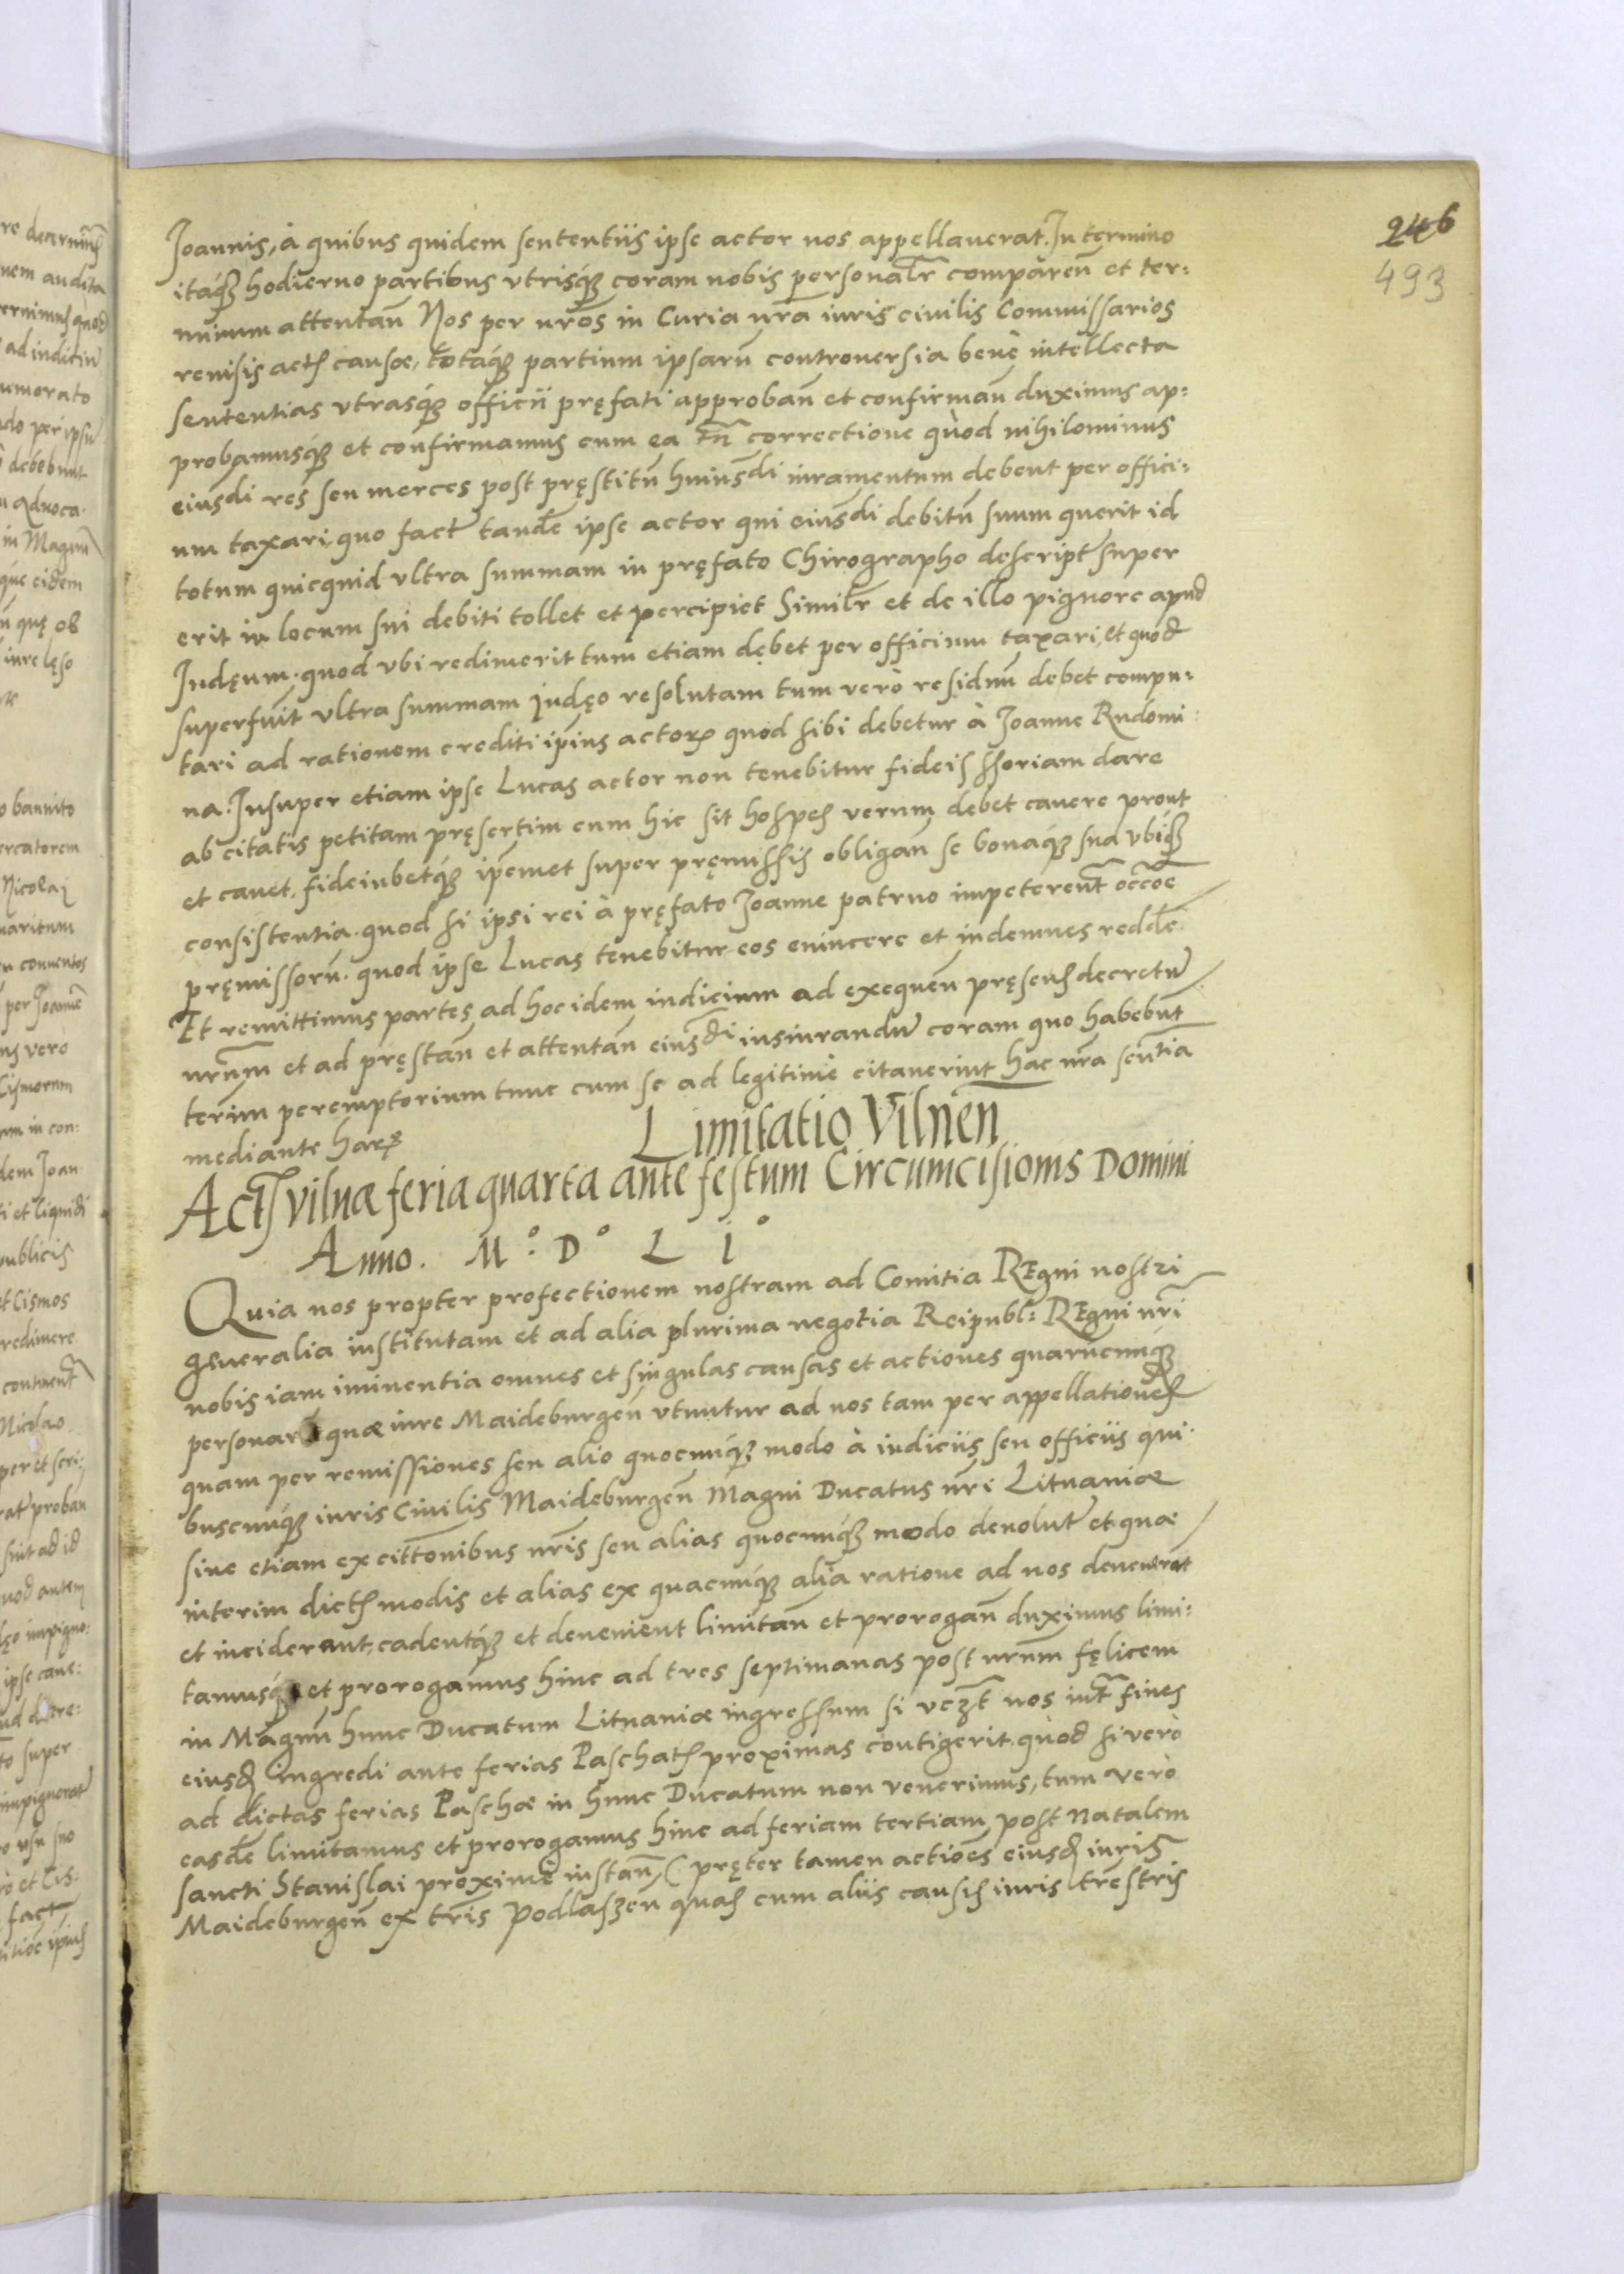 246
493
Joannis, à quibus quidem sententiis ipse actor nos appellauerat. In termino
itaq́ꝫ hodierno partibus vtrisq́ꝫ coram nobis personalr̃ comparen̄ et ter:
minum attentan̄ Nos per nr̃os in Curia nr̃a iuris ciuilis Commissarios
reuisis actis causæ, totaq́ꝫ partium ipsarū controuersia benè intellecta
sententias vtrasq́ꝫ officii pręfati approban̄ et confirman̄ duximus ap:
probamusq́ꝫ et confirmamus cum ea tn̄ correctione quòd nihilominus
eiusdi res seu merces post pręstitū huiusdi iuramentum debent per offici:
um taxari, quo fact̃ tandē ipse actor qui eiusdi debitū suum querit id
totum quicquid vltra summam in pręfato Chirographo descript̃ super
erit in locum sui debiti tollet et percipiet Similr̃ et de illo pignore apud
Judęum. quod vbi redimerit tum etiam debet per officium taxari, et quod
superfuit vltra summam Judęo resolutam tum verò residuū debet compu:
tari ad rationem crediti ip̄ius actoꝝ quod sibi debetur à Joanne Rudomi:
na. Insuper etiam ipse Lucas actor non tenebitur fideissoriam dare
ab citatis petitam pręsertim cum hic sit hospes verum debet cauere prout
et cauet. fideiubetq́ꝫ ip̄emet super pręmissis obligan̄ se bonaq́ꝫ sua vbiq́ꝫ
consistentia. quod si ipsi rei à pręfato Joanne patruo impeterent̃ occōe
pręmissorū. quod ipse Lucas tenebitur eos euincere et indemnes reddẽ.
Et remittimus partes ad hoc idem iudicium ad exequen̄ pręsens decretū
nr̃um et ad pręstan̄ et attentan̄ eiusdi iusiurandū coram quo habebunt
term̄ peremptorium tunc cum se ad legitimè citauerint hac nr̃a sentia
mediante harꝫ
Limitatio Vilnen̄
Actũ vilnæ feria quarta ante festum Circumcisionis Domini
Anno. M.° D° L I°
Quia nos propter profectionem nostram ad Comitia REgni nostri
generalia institutam et ad alia plurima negotia Reipubl: REgni nr̃i
nobis iam iminentia omnes et singulas causas et actiones quarūcunq́ꝫ
personarū quæ iure Maideburgen̄ vtuntur ad nos tam per appellationes
quam per remissiones seu alio quocunq́ꝫ modo à iudiciis seu officiis qui:
buscunq́ꝫ iuris Ciuilis Maideburgen̄ Magni Ducatus nr̃i Lituaniæ
siue etiam ex citt̃onibus nr̃is seu alias quocunq́ꝫ modo deuolut̃ et quæ
interim dictis modis et alias ex quacunq́ꝫ alia ratione ad nos deuenerũt
et inciderunt, cadentq́ꝫ et deuenient limitan̄ et prorogan̄ duximus limi:
tamusq́ꝫ et prorogamus hinc ad tres septimanas post nr̃um fęlicem
in Magnū hunc Ducatum Lituaniæ ingressum si vczt̃ nos int̃ fines
eiusd̃ ingredi ante ferias Paschatis proximas contigerit. quòd si verò
ad dictas ferias Paschæ in hunc Ducatum non venerimus, tum verò
easdē limitamus et prorogamus hinc ad feriam tertiam post Natalem
sancti Stanislai proximè instan̄, (pręter tamen actiōes eiusd̃ iuris
Maideburgen̄ ex tr̃is Podlaszen̄ quas cum aliis causis iuris tr̃estris